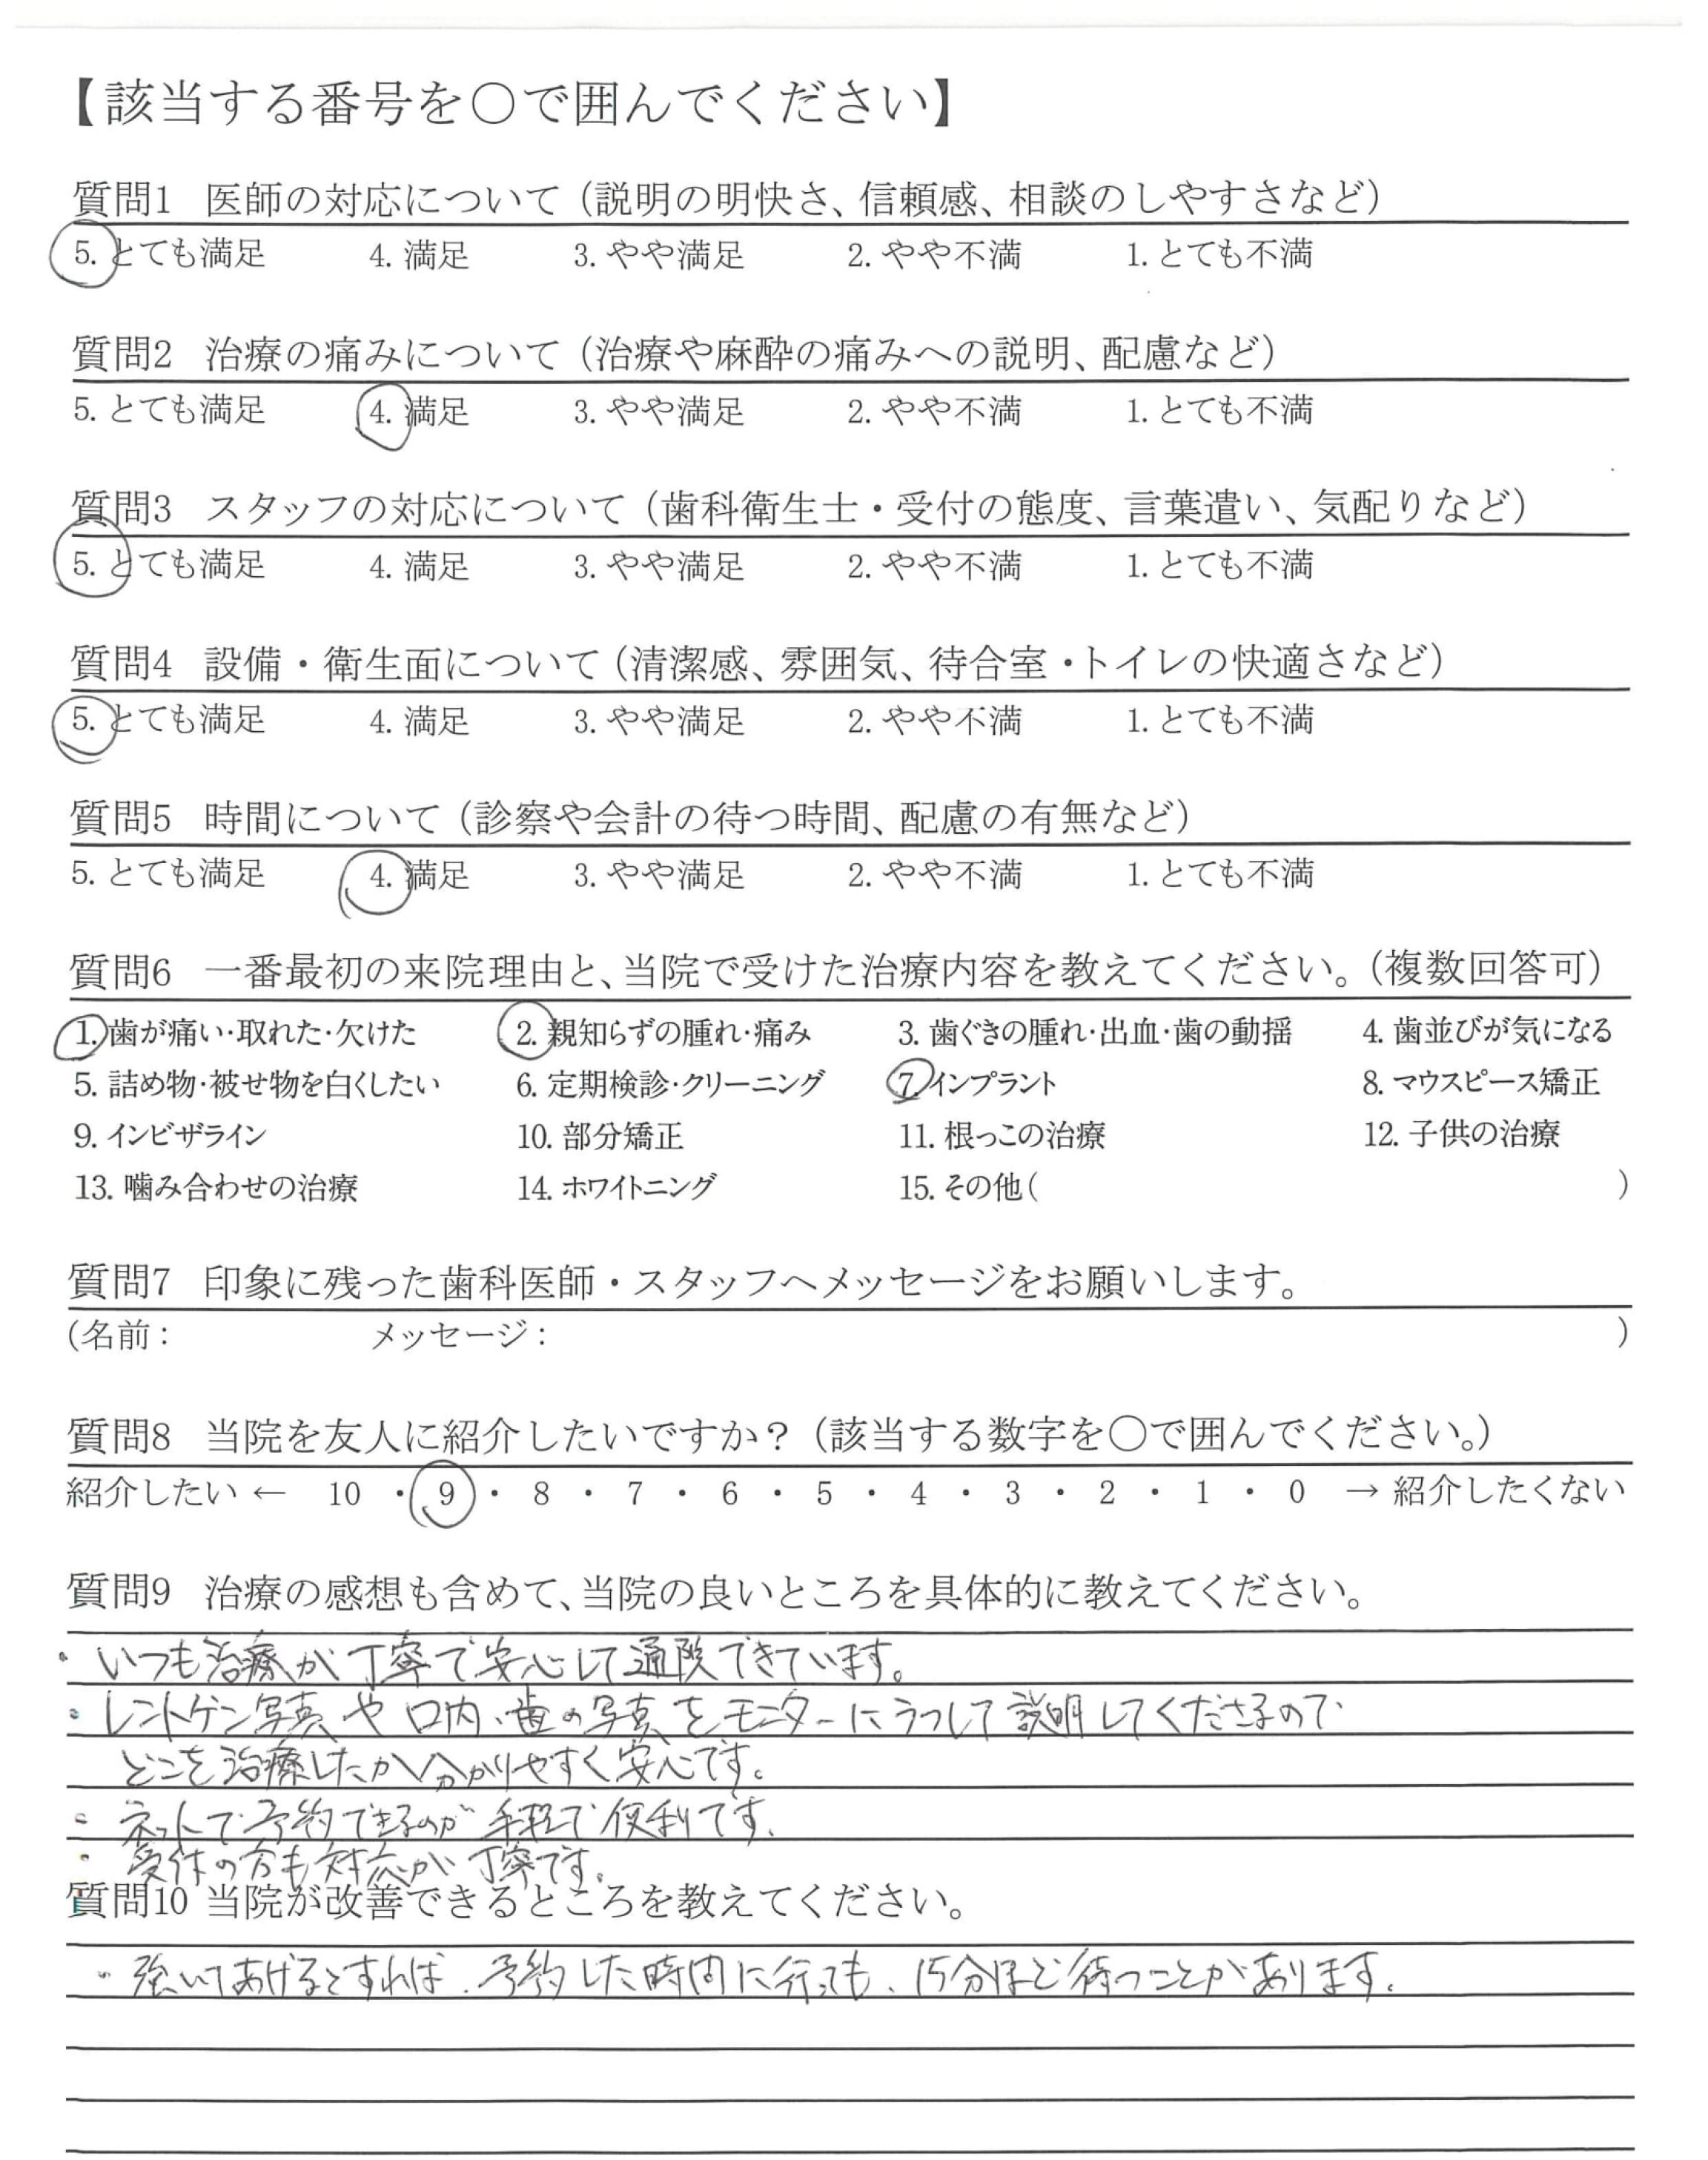 【該当する番号を○で囲んでください】
質問1 医師の対応について（説明の明快さ、信頼感、相談のしやすさなど）
5. とても満足 4. 満足 3. やや満足 2. やや不満 1. とても不満
質問2 治療の痛みについて（治療や麻酔の痛みへの説明、配慮など）
5. とても満足 4. 満足 3. やや満足 2. やや不満 1. とても不満
質問3 スタッフの対応について（歯科衛生士・受付の態度、言葉遣い、気配りなど）
5. とても満足 4. 満足 3. やや満足 2. やや不満 1. とても不満
質問4 設備・衛生面について（清潔感、雰囲気、待合室・トイレの快適さなど）
5. とても満足 4. 満足 3. やや満足 2. やや不満 1. とても不満
質問5 時間について（診察や会計の待つ時間、配慮の有無など）
5. とても満足 4. 満足 3. やや満足 2. やや不満 1. とても不満
質問6 一番最初の来院理由と、当院で受けた治療内容を教えてください。（複数回答可）
1. 歯が痛い・取れた・欠けた 2. 親知らずの腫れ・痛み 3. 歯ぐきの腫れ・出血・歯の動揺 4. 歯並びが気になる
5. 詰め物・被せ物を白くしたい 6. 定期検診・クリーニング 7. インプラント 8. マウスピース矯正
9. インビザライン 10. 部分矯正 11. 根っこの治療 12. 子供の治療
13. 噛み合わせの治療 14. ホワイトニング 15. その他（ ）
質問7 印象に残った歯科医師・スタッフへメッセージをお願いします。
（名前： メッセージ： ）
質問8 当院を友人に紹介したいですか？（該当する数字を○で囲んでください。）
紹介したい ← 10 ・ 9 ・ 8 ・ 7 ・ 6 ・ 5 ・ 4 ・ 3 ・ 2 ・ 1 ・ 0 → 紹介したくない
質問9 治療の感想も含めて、当院の良いところを具体的に教えてください。
・いつも治療が丁寧で安心して通院できています。
・レントゲン写真や口内、歯の写真をモニターにうつして説明してくださるので
どこを治療したか分かりやすく安心です。
・ネットで予約できるのが手軽で便利です。
・受付の方も対応が丁寧です。
質問10 当院が改善できるところを教えてください。
・強いてあげるとすれば、予約した時間に行っても、15分ほど待つことがあります。